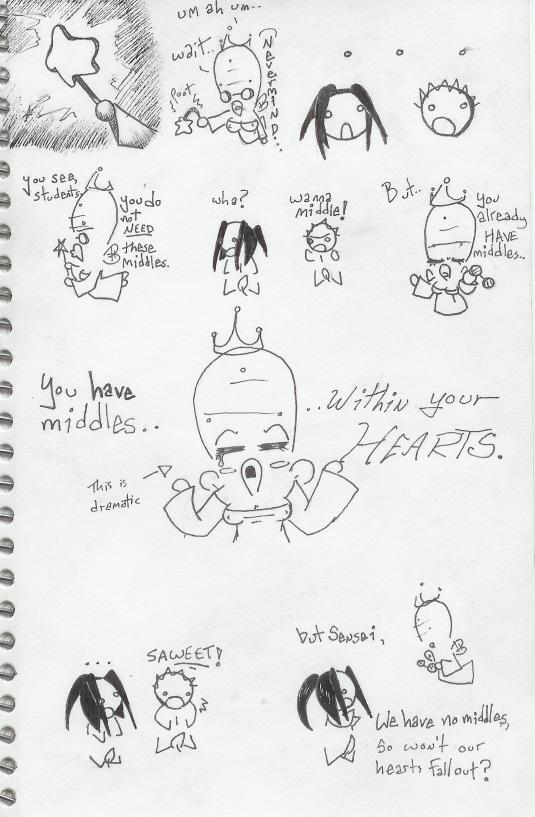 um ah um..
wait..
Poot
NeverminD...
you see,
students,
you do
not
NEED
these
middles.
wha?
wanna
middle!
But..
you
already
HAVE
middles..
You have
middles..
..Within your
HEARTS.
This is
dramatic
...
SAWEET!
but Sensei,
We have no middles,
so won't our
hearts fall out?